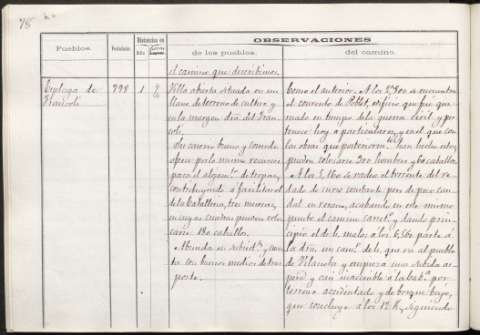 78
OBSERVACIONES
Pueblos.
Vecindario.
Distancias en
Kils.
de los pueblos.
del camino.
el camino que describimos.
Espluga de
Francolí
998
1
2
Villa abierta situada en un
llano de terreno de cultivo y en
la margen dra. del Fran-
colí.
Su caserío bueno y
ofrece por lo mismo recursos
para el alojamto. de tropas,
contribuyendo a facilitar el
de la Caballería, tres mesones,
en cuyas cuadras pueden colo-
carse 180 caballos.
Abunda en
con buenos medios de tras-
porte.
Como el anterior. A los 2,800 se encuentra
el convento de Poblet, edificio que fue que-
mado en tiempo de la guerra civil y per-
tenece hoy a particulares, y en el que con
las obras que posteriormte. han hecho estos
pueden colocarse 300 hombres y 60 caballos.
A los 5,160 se vadea el torrente del
de curso constante pero de poco cau-
dal en verano, acabando en este mismo
punto el camino carretl. y dando prin-
cipio el de h. malo; a los 6,560 parte a
la dra. un camo. de h. que va al pueblo
de Vilanova y empieza una subida as-
pera y casi inaccesible a la caba. por
terreno accidentado y de bosque bajo,
que concluye a los 12 K., siguiendo